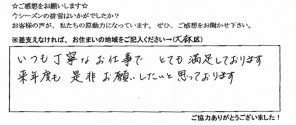 ☆ご感想をお願いします☆
今シーズンの接客はいかがでしたか?
お客様の声が、私たちの原動力になっています。ぜひ、ご感想をお聞かせ下さい。
※差支えなければ、お住まいの地域をご記入ください→(大森区)
いつも丁寧なお仕事で とても満足しております
来年度も 是非お願いしたいと思っております
ご協力ありがとうございました!